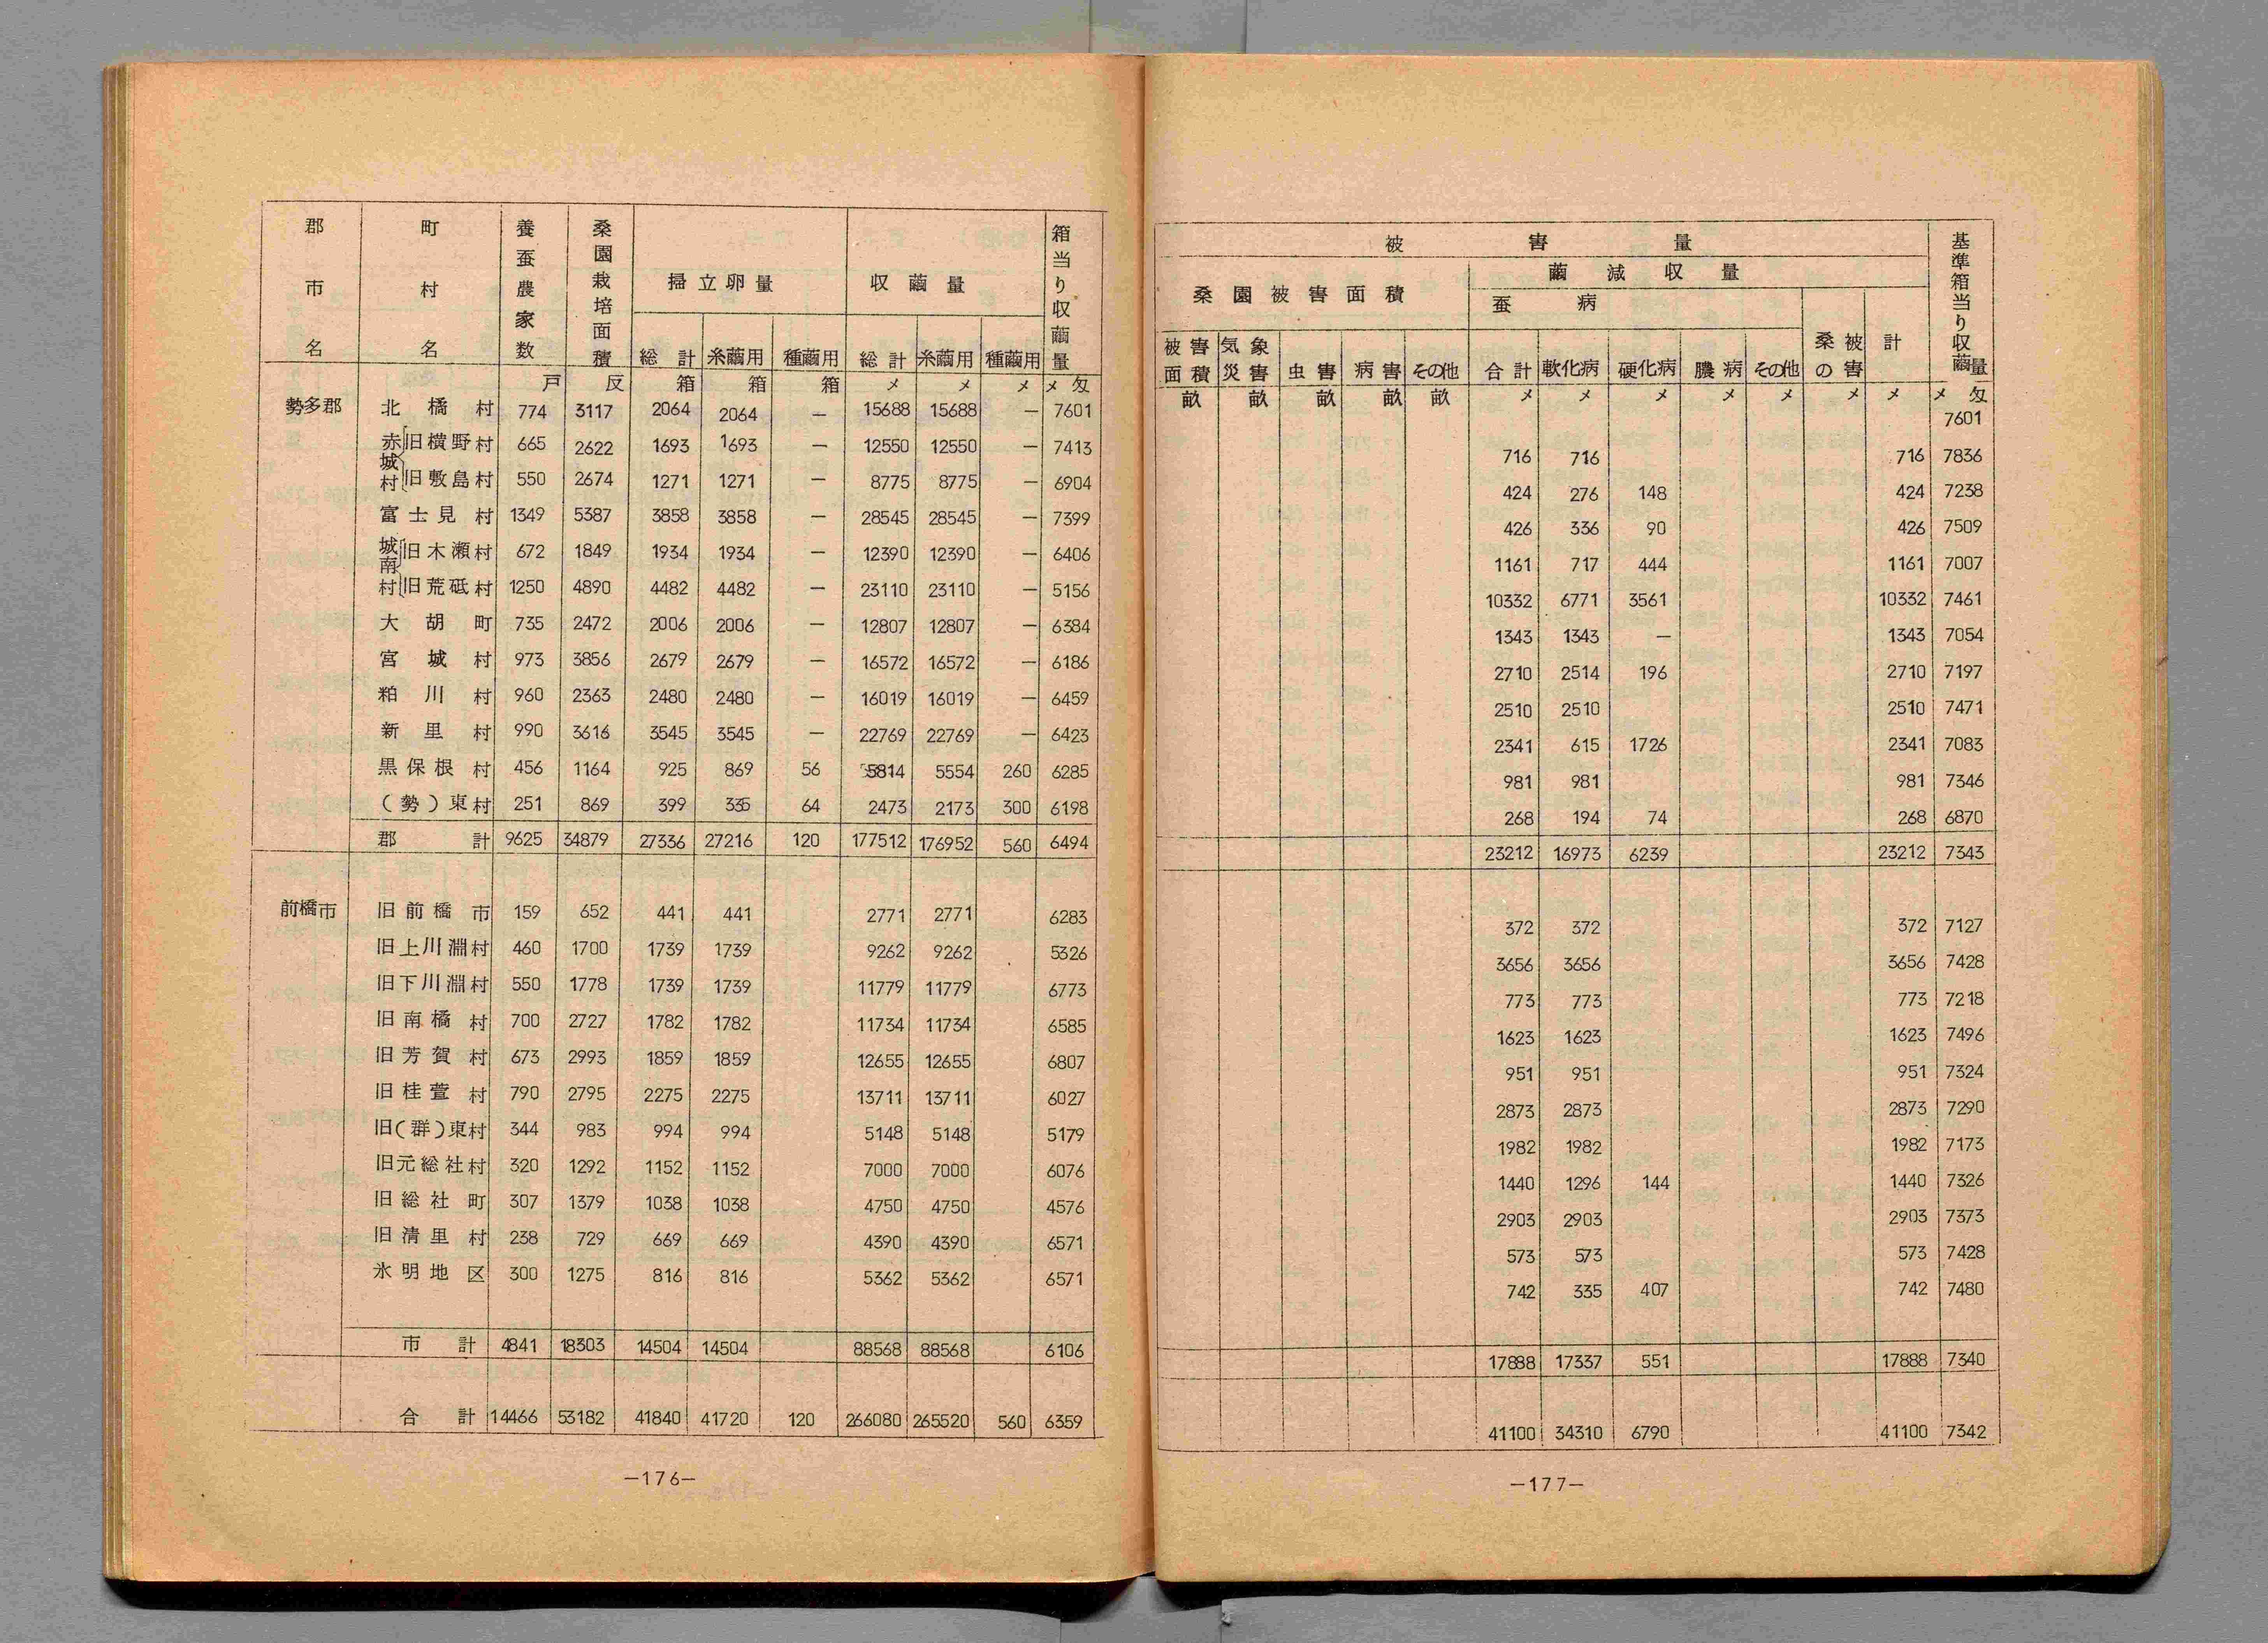 郡市名 町村名 養蚕農家数 桑園栽培面積 掃立卵量 収繭量 箱当り収繭量
総計 糸繭用 種繭用 総計 糸繭用 種繭用
戸 反 箱 箱 箱 〆 〆 〆 〆匁
勢多郡 北橘村 774 3117 2064 2064 — 15688 15688 — 7601
赤城村 旧横野村 665 2622 1693 1693 — 12550 12550 — 7413
旧敷島村 550 2674 1271 1271 — 8775 8775 — 6904
富士見村 1349 5387 3858 3858 — 28545 28545 — 7399
城南村 旧木瀬村 672 1849 1934 1934 — 12390 12390 — 6406
旧荒砥村 1250 4890 4482 4482 — 23110 23110 — 5156
大胡町 735 2472 2006 2006 — 12807 12807 — 6384
宮城村 973 3856 2679 2679 — 16572 16572 — 6186
粕川村 960 2363 2480 2480 — 16019 16019 — 6459
新里村 990 3616 3545 3545 — 22769 22769 — 6423
黒保根村 456 1164 925 869 56 5814 5554 260 6285
(勢)東村 251 869 399 335 64 2473 2173 300 6198
郡計 9625 34879 27336 27216 120 177512 176952 560 6494
前橋市 旧前橋市 159 652 441 441 2771 2771 6283
旧上川淵村 460 1700 1739 1739 9262 9262 5326
旧下川淵村 550 1778 1739 1739 11779 11779 6773
旧南橋村 700 2727 1782 1782 11734 11734 6585
旧芳賀村 673 2993 1859 1859 12655 12655 6807
旧桂萱村 790 2795 2275 2275 13711 13711 6027
旧(群)東村 344 983 994 994 5148 5148 5179
旧元総社村 320 1292 1152 1152 7000 7000 6076
旧総社町 307 1379 1038 1038 4750 4750 4576
旧清里村 238 729 669 669 4390 4390 6571
氷明地区 300 1275 816 816 5362 5362 6571
市計 4841 18303 14504 14504 88568 88568 6106
合計 14466 53182 41840 41720 120 266080 265520 560 6359
—176—
被害量 基準箱当り収繭量
桑園被害面積 繭減収量
蚕病 桑被の害 計
被害面積 気象災害 虫害 病害 その他 合計 軟化病 硬化病 膿病 その他
畝 畝 畝 畝 畝 〆 〆 〆 〆 〆 〆 〆 〆匁
7601
716 716 716 7836
424 276 148 424 7238
426 336 90 426 7509
1161 717 444 1161 7007
10332 6771 3561 10332 7461
1343 1343 — 1343 7054
2710 2514 196 2710 7197
2510 2510 2510 7471
2341 615 1726 2341 7083
981 981 981 7346
268 194 74 268 6870
23212 16973 6239 23212 7343
372 372 372 7127
3656 3656 3656 7428
773 773 773 7218
1623 1623 1623 7496
951 951 951 7324
2873 2873 2873 7290
1982 1982 1982 7173
1440 1296 144 1440 7326
2903 2903 2903 7373
573 573 573 7428
742 335 407 742 7480
17888 17337 551 17888 7340
41100 34310 6790 41100 7342
—177—